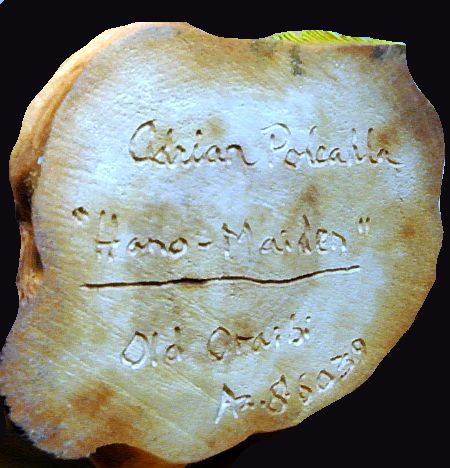 Adrian Poleahla
"Hano-Maiden"
Old Oraibi
Az. 86039